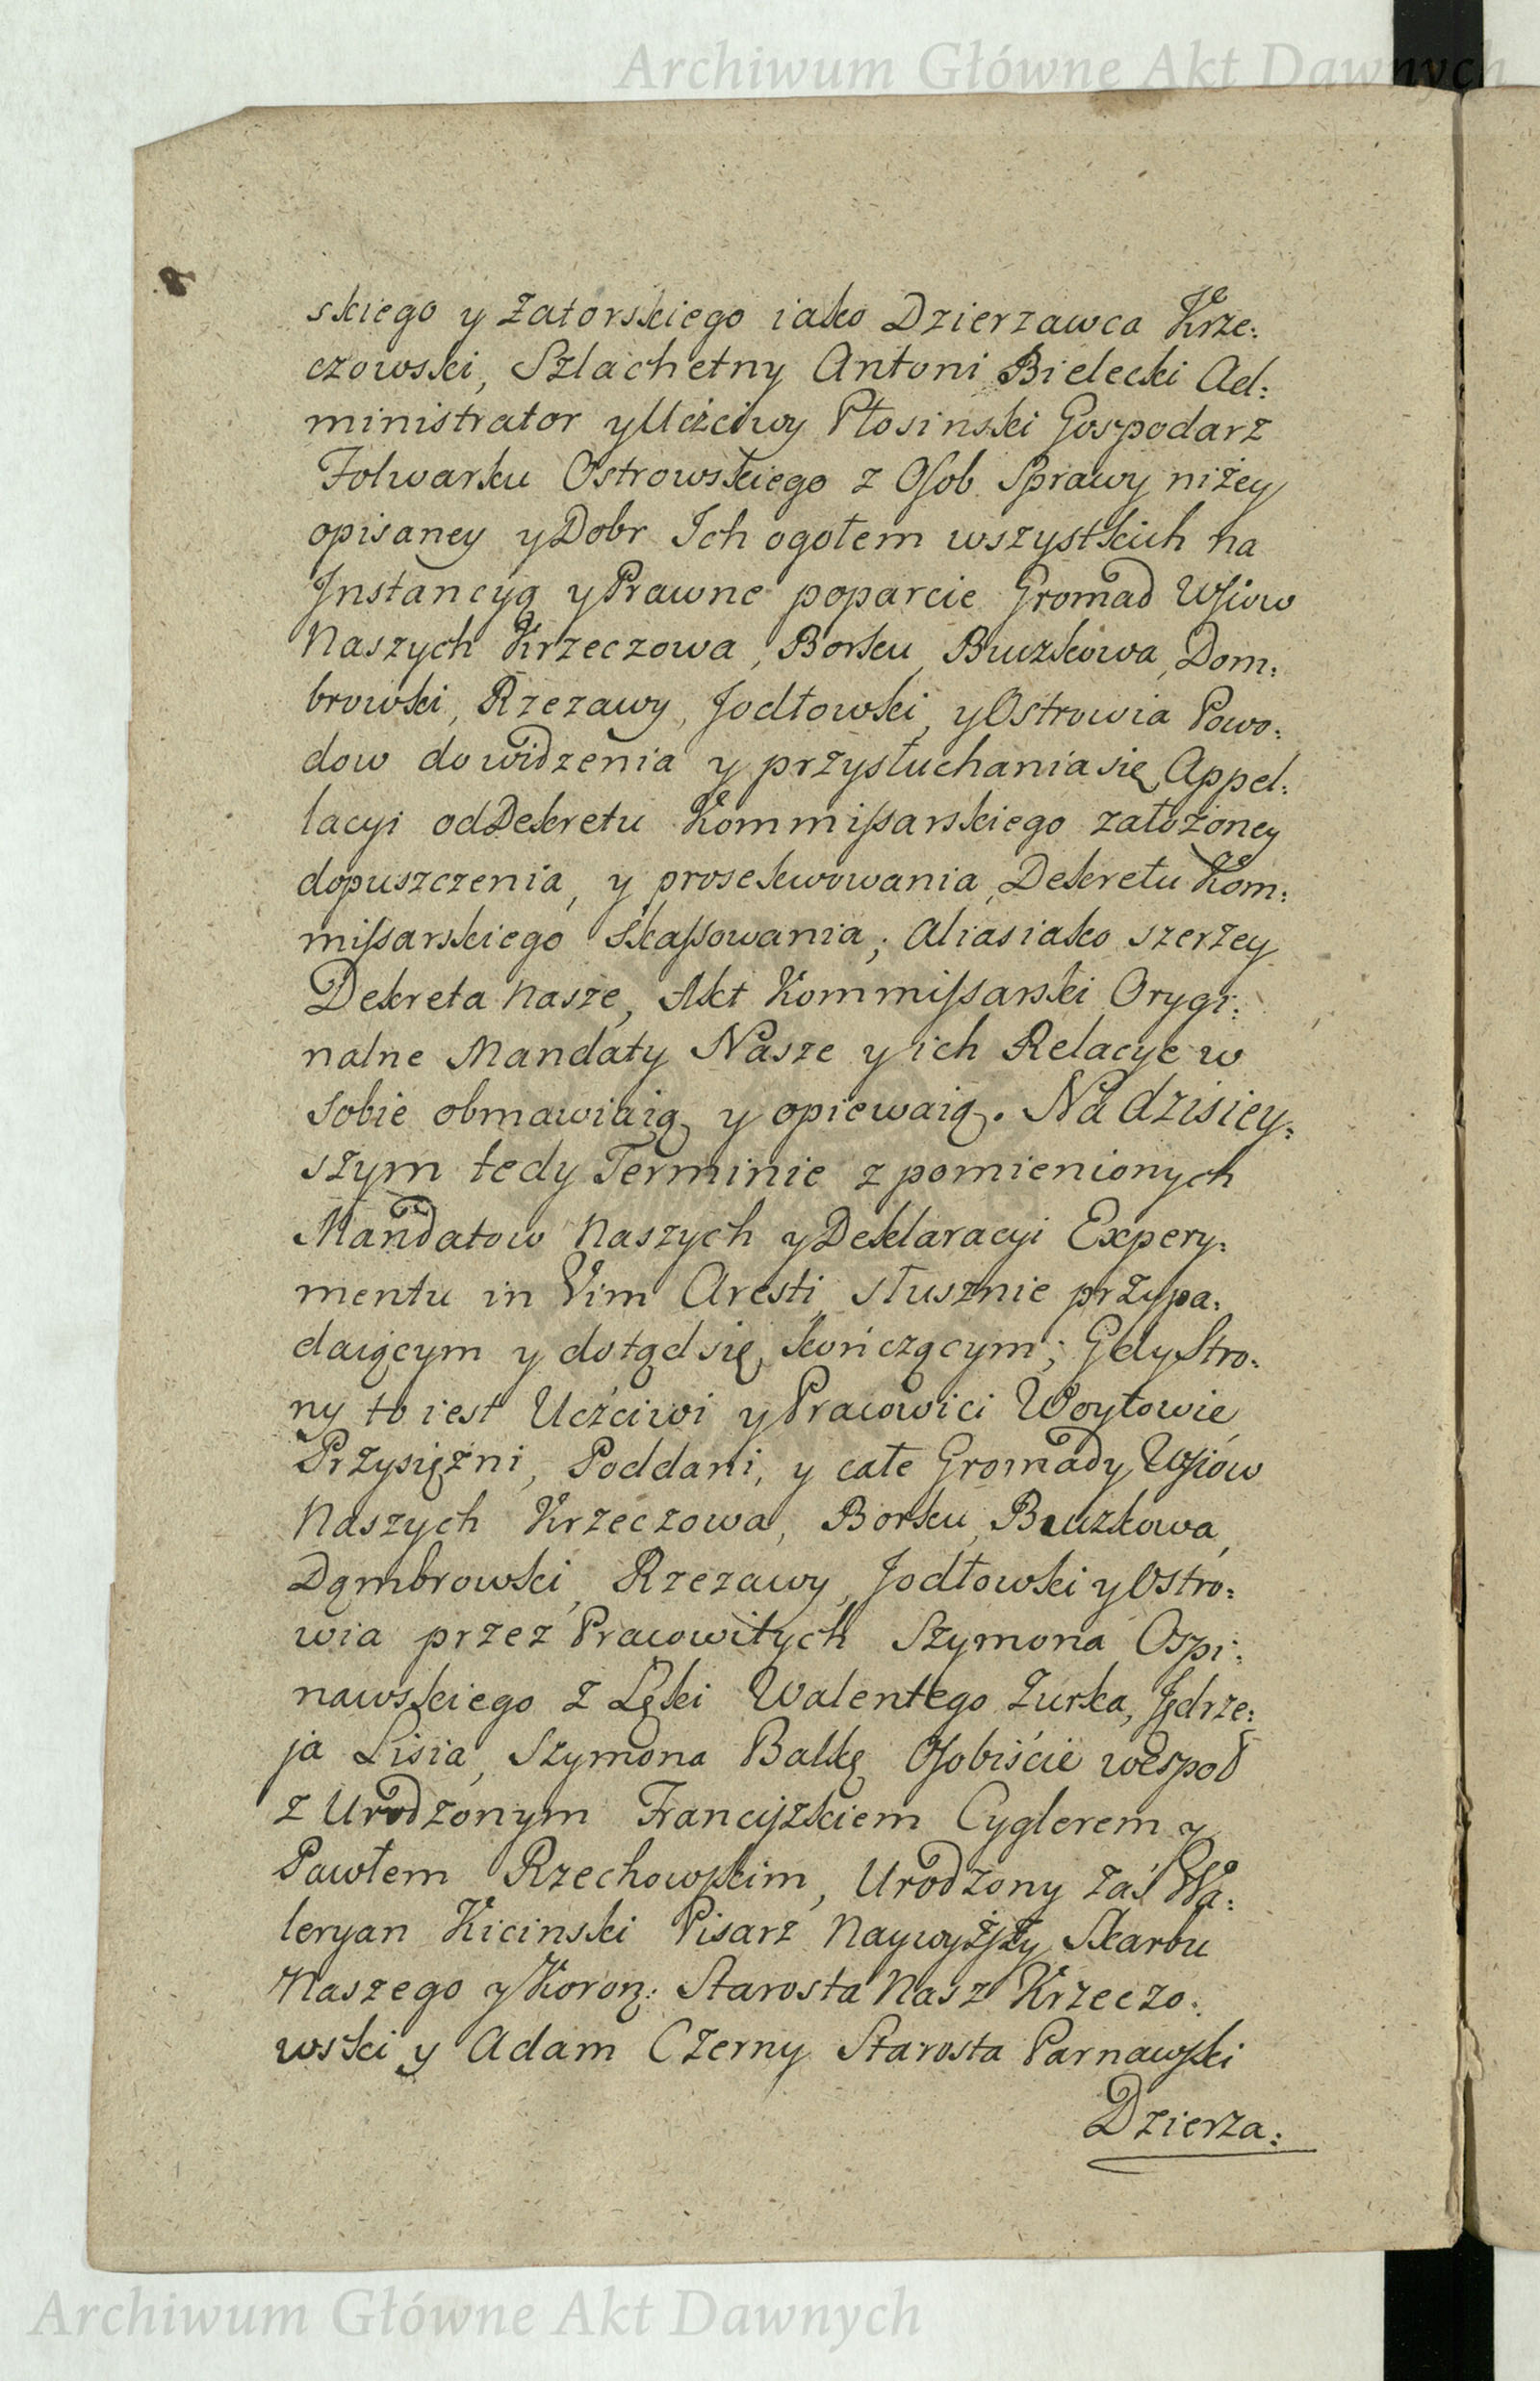 Archiwum Główne Akt Dawnych
skiego y Zatorskiego iako Dzierzawca Krze:
czowski, Szlachetny Antoni Bielecki Ad:
ministrator y Uczciwy Płosinski Gospodarz
Folwarku Ostrowskiego z Osob Sprawy niżey
opisaney y Dobr Ich ogołem wszystkich na
Instancyą y Prawne poparcie Gromad Wsiow
Naszych Krzeczowa, Borku, Buczkowa, Dom:
browki, Rzezawy, Jodłowki, y Ostrowia Powo:
dow do widzenia y przysłuchania się Appel:
lacyi od Dekretu Kommissarskiego założoney
dopuszczenia, y prosekwowania, Dekretu Kom:
missarskiego Skassowania; Alias iako szerzey
Dekreta Nasze, Akt Kommissarski Orygi:
nalne Mandaty Nasze y ich Relacye w
sobie obmawiaią y opiewaią. Na dzisiey:
szym tedy Terminie z pomienionych
Mandatow Naszych y Deklaracyi Expery:
mentu in Vim Aresti słusznie przypa:
daiącym y dotąd się kończącym; Gdy Stro:
ny to iest Uczciwi y Pracowici Woytowie,
Przysiężni, Poddani, y całe Gromady Wsiow
Naszych Krzeczowa, Borku, Buczkowa,
Dąmbrowki, Rzezawy, Jodłowki y Ostro:
wia przez Pracowitych Szymona Ospi:
nawskiego z Łęki Walentego Zurka, Jędrze:
ja Lisia, Szymona Balkę Osobiście wespoł
z Urodzonym Franciszkiem Cyglerem y
Pawłem Rzechowskim, Urodzony zaś Wa:
leryan Kicinski Pisarz Naywyższy Skarbu
Naszego y Koron: Starosta Nasz Krzeczo:
wski y Adam Czerny Starosta Parnawski
Dzierza:
Archiwum Główne Akt Dawnych